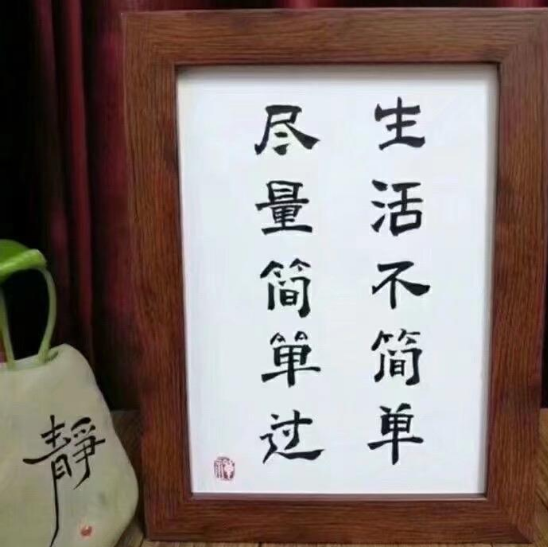 生活不简单
尽量简單过
靜